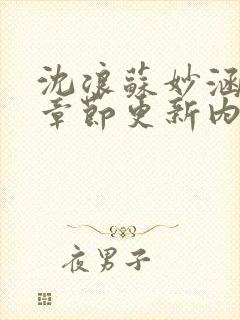 沈浪蘇妙涵
章節更新内
夜男子